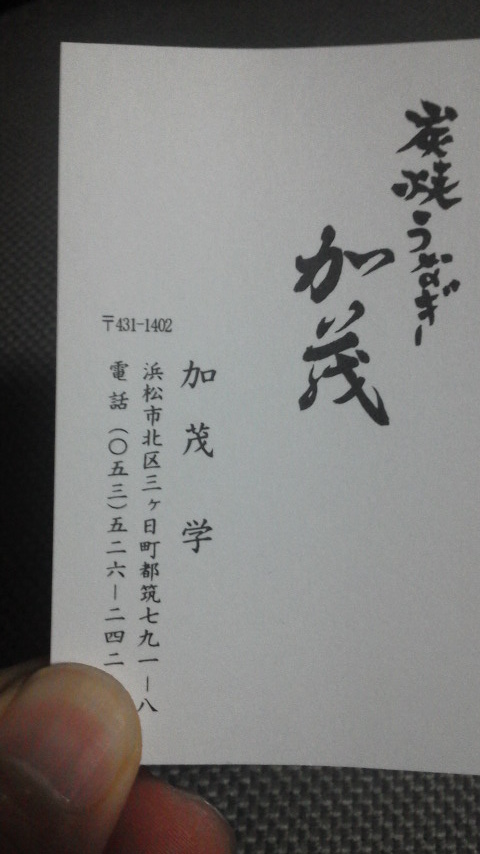 炭焼うなぎ
加茂
加茂 学
〒431-1402
浜松市北区三ヶ日町都筑七九一ー八
電話(〇五三)五二六ー二四二